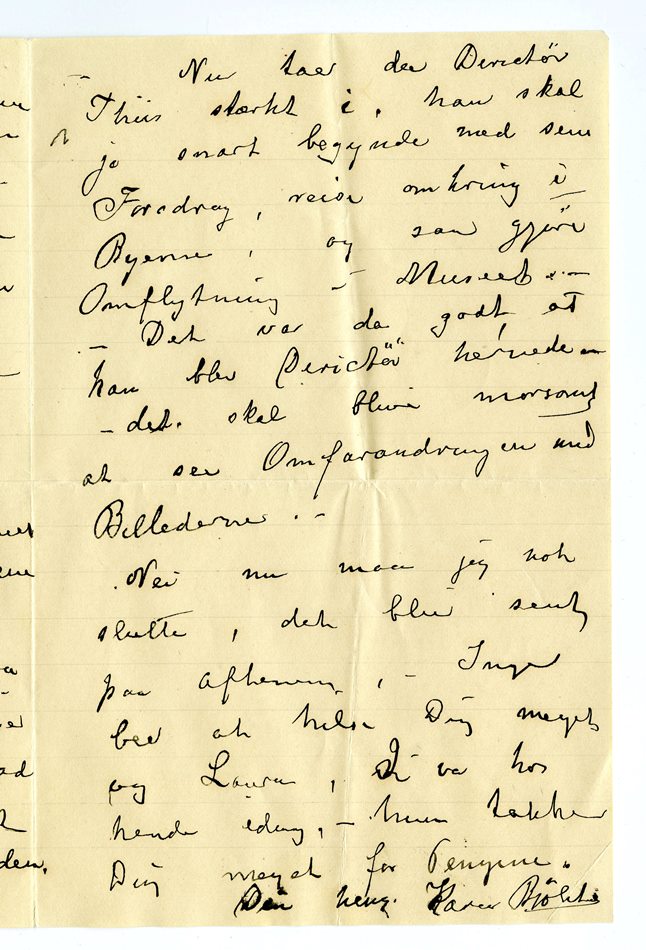 – Nu taer da Derictør
Thiis stærkt i, han skal
jo snart begynde med sine
Foredrag, reise omkring i
Byerne, og saa gjøre
Omflytning i Museet. –
– Det var da godt at
han blev Derictør hernede –
– det skal blive morsomt
at see Omforandringen med
Billederne. –
Nei nu maa jeg nok
slutte, det blir sent
paa Aftenen, – Inger
bed at hilse Dig meget
og Laura, Vi var hos
hende idag, – hun takker
Dig meget for Pengene.
Din heng. Karen Bjølstad
den.